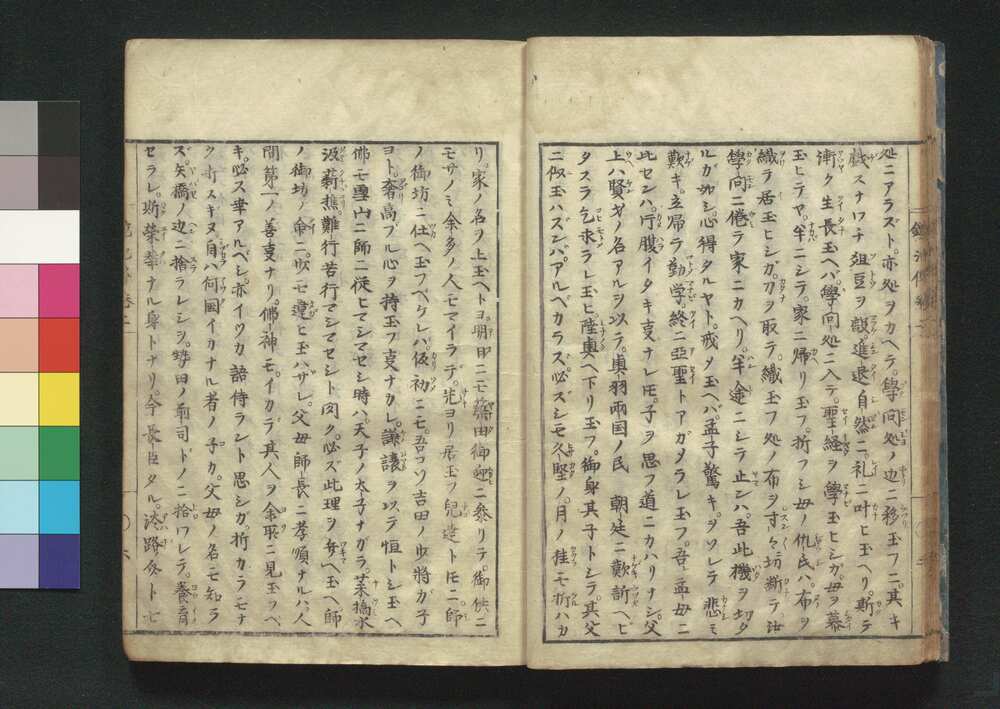 処ニアラズト。亦処ヲカヘテ。學問処ノ辺ニ移玉フニ。其キ
戯スナワチ俎豆ヲ設。進退自然ニ。礼ニ叶ヒ玉ヘリ。斯テ
漸ク生長玉ヘバ。學問処ニ入テ。聖経ヲ學玉ヒシガ。母ヲ慕
玉ヒテヤ。半ニシテ。家ニ帰リ玉フ。折フシ母ノ仇氏ハ。布ヲ
織テ居玉ヒシガ。刀ヲ取テ。織玉フ処ノ布ヲ寸々ニ切断テ。汝
學問ニ倦テ家ニカヘリ。半途ニシテ止ンハ。吾此機ヲ切タ
ルガ如シ。心得タルヤト。戒タ玉ヘバ。孟子驚キ。ソレヲ悲ミ
歎キ。立帰テ勤学。終ニ亞聖トアガメラレ玉フ。吾孟母ニ
比センハ。片腹イタキ叓ナレ𪜈。子ヲ思フ道ニカハリナシ。父
上ハ賢才ノ名アルヲ以テ。奥羽兩国ノ民 朝廷ニ歎訴ヘヒ
タスラ乞求ラレ玉ヒ陸奥ヘ下リ玉フ。御身其子トシテ。其父
ニ似玉ハズンバ。アルベカラス。必ズシモ久堅ノ。月ノ桂モ折ハカ
リ。家ノ名ヲ上玉ヘトヨ。明日ニモ
御迎ニ参リテ。御供ニ
モサノミ余多ノ人モマイラデ。先ヨリ居玉フ兒達ト𪜈ニ。師
ノ御坊ニ仕ヘ玉フベケレバ。仮初ニモ。吾コソ吉田ノ少將ガ子
ヨト。奢高ブル心ヲ持玉フ叓ナカレ。謙讓ヲ以テ恒トシ玉ヘ
佛モ雪山ニ師ニ従ヒテマシマセシ時ハ。天子ノ太子ナガラ。菜摘水
汲薪樵。難行苦行マシマセシト聞ク。必ズ此理ヲ弁ヘ玉ヘ師
ノ御坊ノ命ニ。吹モ違ヒ玉ハザレ。父母師長ニ孝順ナルハ。人
間第一ノ善叓ナリ。佛神モ。イカデ其人ヲ余聚ニ見玉フベ
キ。必ス幸アルベシ。亦イツカ語侍ラント思シガ。折カラモナ
ク打スキヌ。自ハ何國イカナル者ノ子カ。父母ノ名モ知ラ
ズ。矢橋ノ辺ニ捨ラレシヲ。
田ノ前司ドノニ拾ワレテ。養育
セラレ。斯榮幸ナル身トナリ。今長臣タル。